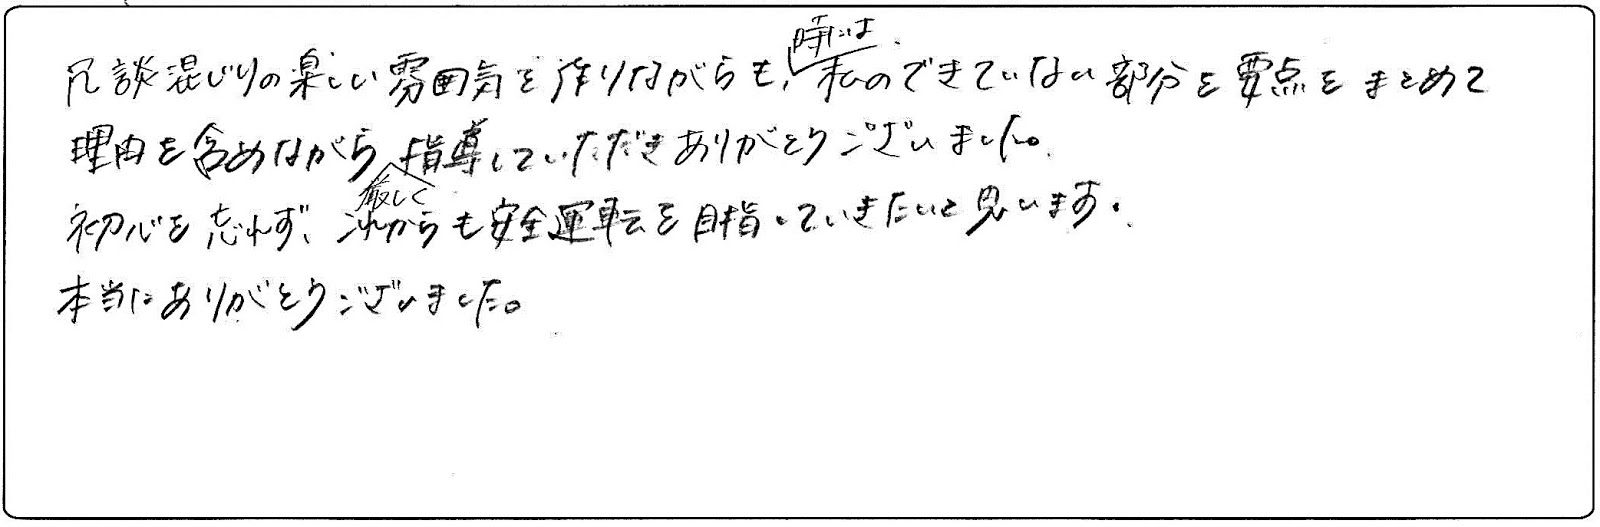 冗談混じりの楽しい雰囲気を作りながらも、時には私のできていない部分を要点をまとめて
理由を含めながら厳しく指導していただきありがとうございました。
初心を忘れず、これからも安全運転を目指していきたいと思います。
本当にありがとうございました。